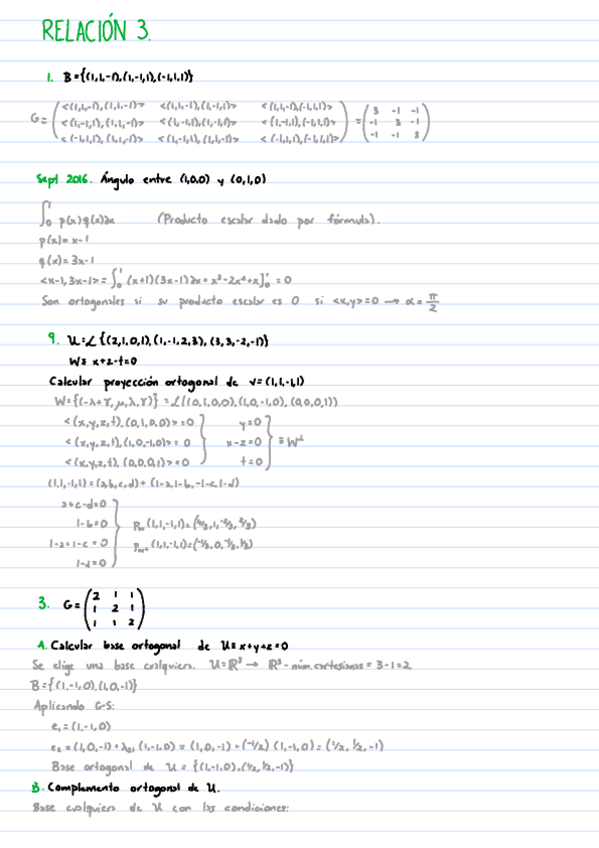 RELACIÓN 3.
1. B={(1,1,-1),(1,-1,1),(-1,1,1)}
G= ( <(1,1,-1),(1,1,-1)> <(1,1,-1),(1,-1,1)> <(1,1,-1),(-1,1,1)> ) = ( 3 -1 -1 )
<(1,-1,1),(1,1,-1)> <(1,-1,1),(1,-1,1)> <(1,-1,1),(-1,1,1)> -1 3 -1
<(-1,1,1),(1,1,-1)> <(1,-1,1),(1,1,-1)> <(-1,1,1),(-1,1,1)> -1 -1 3
Sept 2016. Ángulo entre (1,0,0) y (0,1,0)
∫₀¹ p(x)q(x)dx (Producto escalar dado por fórmula).
p(x)=x-1
q(x)=3x-1
<x-1,3x-1>=∫₀¹ (x+1)(3x-1)dx= x³-2x²+x]₀¹ = 0
Son ortogonales si su producto escalar es 0 si <x,y>=0 → α= π/2
9. U=L{(2,1,0,1),(1,-1,2,3),(3,3,-2,-1)}
W≡ x+z-t=0
Calcular proyección ortogonal de v=(1,1,-1,1)
W={(-λ+γ,μ,λ,γ)} =L{(0,1,0,0),(1,0,-1,0),(0,0,0,1)}
<(x,y,z,t),(0,1,0,0)>=0 y=0
<(x,y,z,t),(1,0,-1,0)>=0 x-z=0 ≡W⊥
<(x,y,z,t),(0,0,0,1)>=0 t=0
(1,1,-1,1)=(a,b,c,d)+(1-a,1-b,-1-c,1-d)
a+c-d=0
1-b=0 Pw(1,1,-1,1)=(4/3,1,-2/3,2/3)
1-a+1-c=0 Pw⊥(1,1,-1,1)=(-1/3,0,-1/3,1/3)
1-d=0
3. G= ( 2 1 1 )
1 2 1
1 1 2
A. Calcular base ortogonal de U≡x+y+z=0
Se elige una base cualquiera. U=ℝ³ → ℝ³-núm.cartesianas=3-1=2
B={(1,-1,0),(1,0,-1)}
Aplicando G-S:
e₁=(1,-1,0)
e₂=(1,0,-1)+λ₂₁(1,-1,0)=(1,0,-1)+(-1/2)(1,-1,0)=(1/2,1/2,-1)
Base ortogonal de U={(1,-1,0),(1/2,1/2,-1)}
B. Complemento ortogonal de U.
Base cualquiera de U con las condiciones: